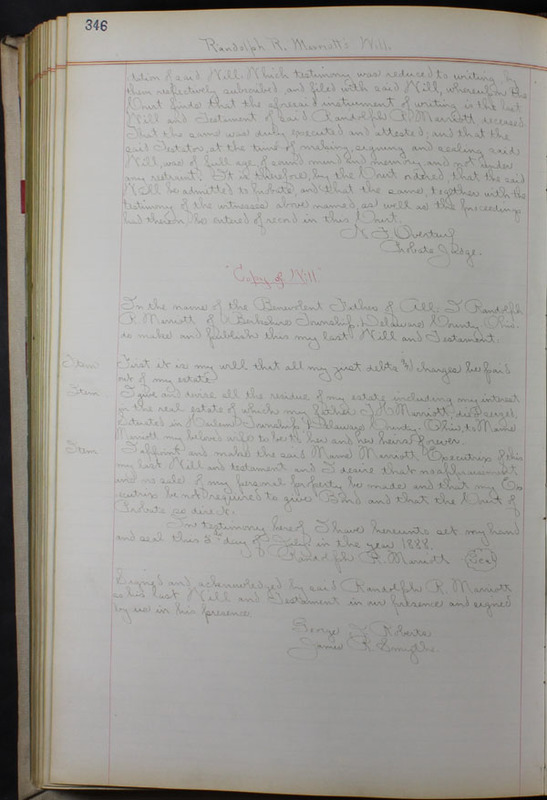 346
Randolph R. Marriott's Will.
tion of said Will. Which testimony was reduced to writing, by
them respectively subscribed, and filed with said Will, whereupon the
Court finds that the aforesaid instrument of writing is the last
Will and Testament of said Randolph R. Marriott deceased.
That the same was duly executed and attested; and that the
said Testator, at the time of making, signing and sealing said
Will, was of full age, of sound mind and memory and not under
any restraint. It is therefore, by the Court ordered, that the said
Will be admitted to probate, and that the same, together with the
testimony of the witnesses above named, as well as the proceedings
had thereon, be entered of record in this Court.
N. F. Overturf
Probate Judge.
"Copy of Will"
In the name of the Benevolent Father of All. I Randolph
R. Marriott of Berkshire Township, Delaware County, Ohio.
do make and publish this my last Will and Testament.
Item First it is my will that all my just debts & charges be paid
out of my estate.
Item I give and devise all the residue of my estate including my interest
in the real estate of which my father J. H. Marriott died seized,
situated in Harlem Township Delaware County, Ohio, to Mame
Marriott my beloved wife to be to her and her heirs forever.
Item I appoint and make the said Mame Marriott Executrix of this
my last Will and testament and I desire that no appraisement
and no sale of my personal property be made and that my Ex-
ecutrix be not required to give Bond and that the Court of
Probate so direct.
In testimony hereof I have hereunto set my hand
and seal this day of in the year 1888.
Randolph R. Marriott (seal)
Signed and acknowledged by said Randolph R. Marriott
as his last Will and Testament in our presence and signed
by us in his presence
George F. Roberts
James R. Smythe.